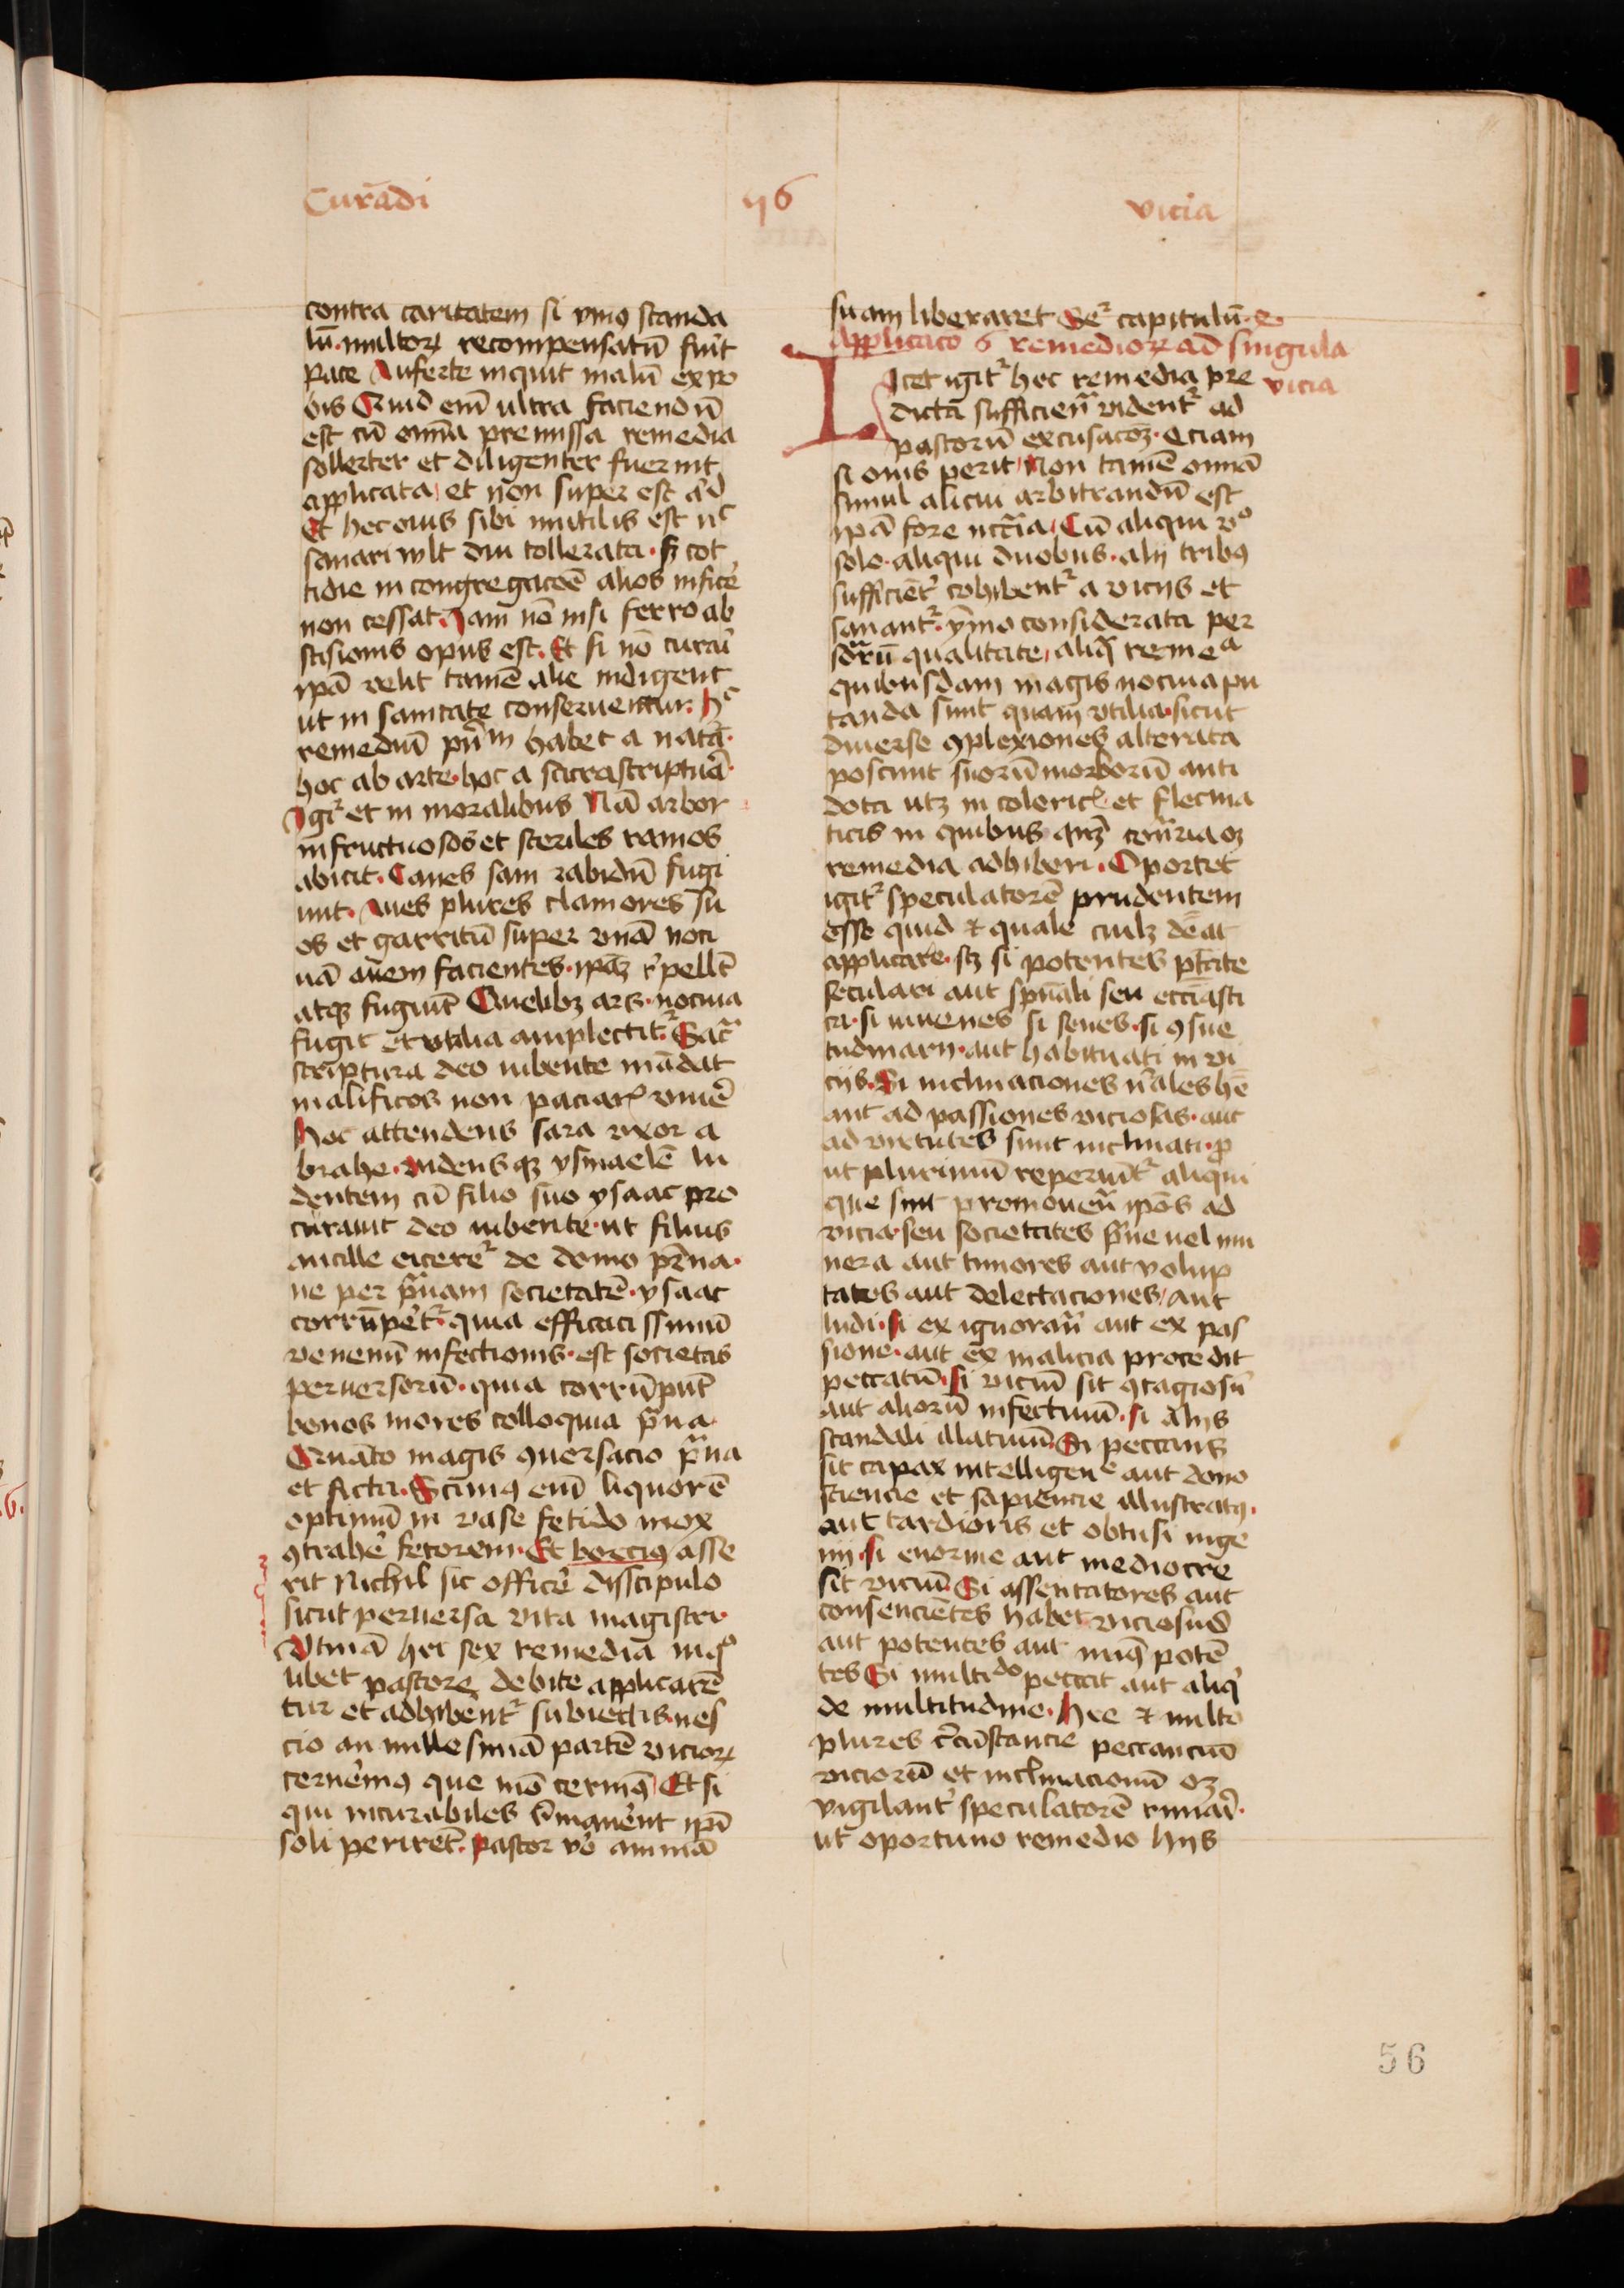 Curādi
56
vicia
contra caritatem si vniꝰ scanda
lū multoꝝ recompensatū fuīt
pace Auferte inquit malū ex vo
bis Quid em̄ ultra faciendū
est cū om̄ia premissa remedia
sollerter et diligenter fuerint
applicata et non super est ad
Et hec ouis sibi inutilis est nc̄
sanari wlt diu tollerata sꝫ cot
tidie in congregacōe alios inficē
non cessat Jam nō nisi ferro ab
scisionis opus est Et si nō curari
ipā velit tamē alie indigent
ut in sanitate conseruentur hc̄
remediū pn̄m habet a nat̄a
hoc ab arte hoc a sacra scriptūa
Jgit᷑ et in moralibus Nā arbor
infructuosos et steriles ramos
abicit Canes fam rabidū fugi
unt Aues plures clamores su
os et garritū super vnā noci
uā auem facientes ipāꝫ r̄pellūt
atqꝫ fugiūt Quelibꝫ ars nociua
fugit Et vtilia amplectit᷑ Sac̄
scriptura deo iubente mādat
malificos non paciar̄ viuē
Hoc attendens sara vxor a
brahe vidensqꝫ ysmaelē lu
dentem cū filio suo ysaac pro
curauit deo iubente ut filius
ancille eiceret᷑ de domo pr̄na
ne per pᷓuam societatē ysaac
corrūpet᷑ quia efficacissimū
venenū infectionis est societas
peruersorū quia corrūpūt
bonos mores colloquia pᷓua
Quāto magis ꝯuersacio pᷓua
et ficta Scimꝰ em̄ liquorē
optimū in vase fetido mox
ꝯtrahē fetorem Et boeciꝰ asse
rit Nichil sic officē discipulo
sicut peruersa vita magistri
Vtinā hec sex remedia
libet pastore debite applicarē
tur et adhibent᷑ subiectis nes
cio an millesimā partē vicioꝝ
cernēmꝰ que mō cernimꝰ Et si
qui incurabiles r̄manēnt ipī
soli perirēt Pastor vō animā
suam liberaret Se᷑ capitulū
Applicacō 6 remedioꝝ ad singula
vicia
Licet igit᷑ hec remedia pre
dicta sufficien̄ vident᷑ ad
pastorū excusacōꝫ Eciam
si ouis perit Non tamē omīa
simul alicui arbitrandū est
ipā fore nc̄c̄ia Cū aliqui vº
solo aliqui duobus alij tribꝰ
sufficiēt᷑ cohibent᷑ a vicijs et
sanant᷑ ymo considerata per
sonarū qualitate aliq̄ remea
quibusdam magis nociua pu
tanda sunt quam vtilia sicut
diuerse ꝯplexiones alterata
poscunt suorū morborū anti
dota utꝫ in coleric̄ et flecma
ticis in quibus qn̄qꝫ conr̄ia oꝫ
remedia adhiberi Oportet
igit᷑ speculatorē prudentem
esse quid et quale cuilꝫ deāt
applicare sꝫ si potentes ptāte
seculari aut spūali seu ecc̄iasti
ca si iuuenes si senes si ꝯsue
tudinarij aut habituati in vi
cijs Si inclinaciones nr̄ales hē
ant ad passiones viciosas aut
ad virtutes sunt inclinati p̄
ut plurimū reperiūt᷑ aliqui
que sint promouen̄ ipōs ad
vicia seu societates pᷓue vel mu
nera aut timores aut volup
tates aut delectaciones aut
ludi Si ex ignoran̄ aut ex pas
sione aut ex malicia procedit
peccatū Si viciū sit ꝯtagiosū
aut aliorū infectiuū si alijs
scandali illatiuū Si peccans
sit capax intelligen̄e aut dono
sciencie et sapiencie illustratꝰ
aut tardioris et obtusi inge
nij Si enorme aut mediocre
sit viciū Si assentatores aut
consencientes habet viciosus
aut potentes aut minꝰ potē
tes Si multido peccat aut aliqͥ
de multitudine Hee et multo
plures cr̄cūstancie peccancium
viciorū et inclinacionū oꝫ
vigilant᷑ speculatorē rimari
ut oportuno remedio hijs
56